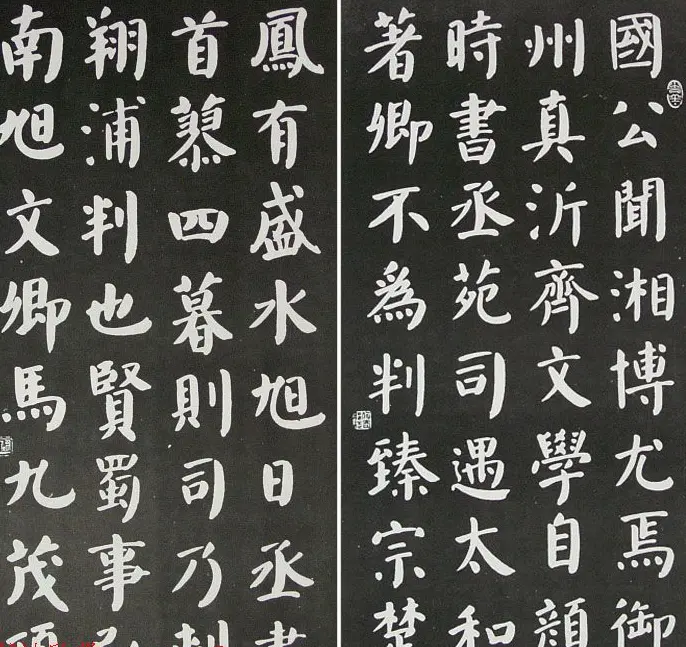 國公聞湘博尤焉御
州真沂齊文學自顏
時書丞苑司遇太和
著卿不為判臻宗楚
鳳有盛水旭日丞書
首四暮則司乃刺
翔浦判也賢蜀事
南旭文卿馬九茂